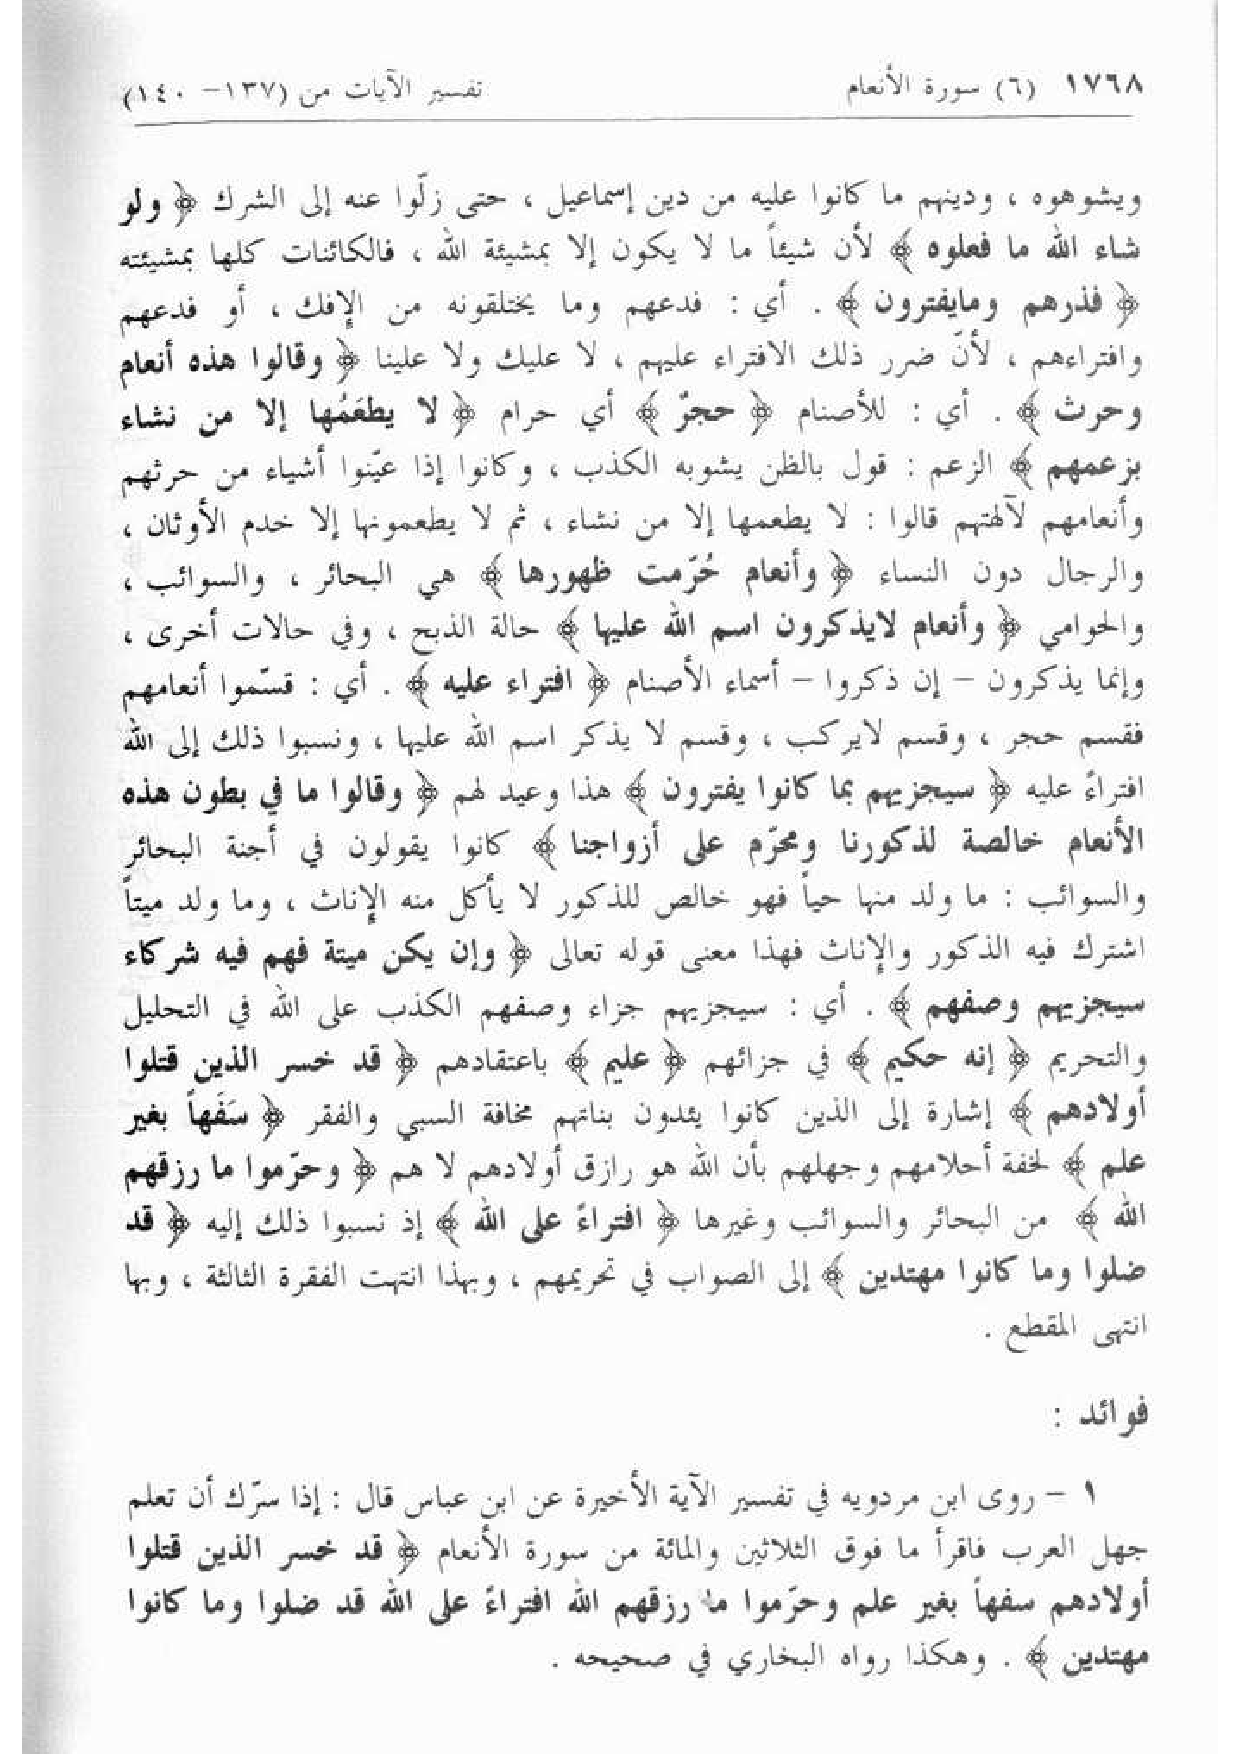 ١٧٦٨ (٦) سورة الأنعام تفسير الآيات من (١٣٧- ١٤٠)
ويشوهوه ، ودينهم ما كانوا عليه من دين إسماعيل ، حتى زلّوا عنه إلى الشرك ﴿ ولو
شاء الله ما فعلوه ﴾ لأن شيئاً ما لا يكون إلا بمشيئة الله ، فالكائنات كلها بمشيئته
﴿ فذرهم ومايفترون ﴾ . أي : فدعهم وما يختلقونه من الإفك ، أو فدعهم
وافتراءهم ، لأنّ ضرر ذلك الافتراء عليهم ، لا عليك ولا علينا ﴿ وقالوا هذه أنعام
وحرث ﴾ . أي : للأصنام ﴿ حجرٌ ﴾ أي حرام ﴿ لا يطعَمُها إلا من نشاء
بزعمهم ﴾ الزعم : قول بالظن يشوبه الكذب ، وكانوا إذا عيّنوا أشياء من حرثهم
وأنعامهم لآلهتهم قالوا : لا يطعمها إلا من نشاء ، ثم لا يطعمونها إلا خدم الأوثان ،
والرجال دون النساء ﴿ وأنعام حُرّمت ظهورها ﴾ هي البحائر ، والسوائب ،
والحوامي ﴿ وأنعام لايذكرون اسم الله عليها ﴾ حالة الذبح ، وفي حالات أخرى ،
وإنما يذكرون – إن ذكروا – أسماء الأصنام ﴿ افتراء عليه ﴾ . أي : قسّموا أنعامهم
فقسم حجر ، وقسم لايركب ، وقسم لا يذكر اسم الله عليها ، ونسبوا ذلك إلى الله
افتراءً عليه ﴿ سيجزيهم بما كانوا يفترون ﴾ هذا وعيد لهم ﴿ وقالوا ما في بطون هذه
الأنعام خالصة لذكورنا ومحرّم على أزواجنا ﴾ كانوا يقولون في أجنة البحائر
والسوائب : ما ولد منها حياً فهو خالص للذكور لا يأكل منه الإناث ، وما ولد ميتاً
اشترك فيه الذكور والإناث فهذا معنى قوله تعالى ﴿ وإن يكن ميتة فهم فيه شركاء
سيجزيهم وصفهم ﴾ . أي : سيجزيهم جزاء وصفهم الكذب على الله في التحليل
والتحريم ﴿ إنه حكيم ﴾ في جزائهم ﴿ عليم ﴾ باعتقادهم ﴿ قد خسر الذين قتلوا
أولادهم ﴾ إشارة إلى الذين كانوا يئدون بناتهم مخافة السبي والفقر ﴿ سَفَهاً بغير
علم ﴾ لخفة أحلامهم وجهلهم بأن الله هو رازق أولادهم لا هم ﴿ وحرّموا ما رزقهم
الله ﴾ من البحائر والسوائب وغيرها ﴿ افتراءً على الله ﴾ إذ نسبوا ذلك إليه ﴿ قد
ضلوا وما كانوا مهتدين ﴾ إلى الصواب في تحريمهم ، وبهذا انتهت الفقرة الثالثة ، وبها
انتهى المقطع .
فوائد :
١ – روى ابن مردويه في تفسير الآية الأخيرة عن ابن عباس قال : إذا سرّك أن تعلم
جهل العرب فاقرأ ما فوق الثلاثين والمائة من سورة الأنعام ﴿ قد خسر الذين قتلوا
أولادهم سفهاً بغير علم وحرّموا ما رزقهم الله افتراءً على الله قد ضلوا وما كانوا
مهتدين ﴾ . وهكذا رواه البخاري في صحيحه .